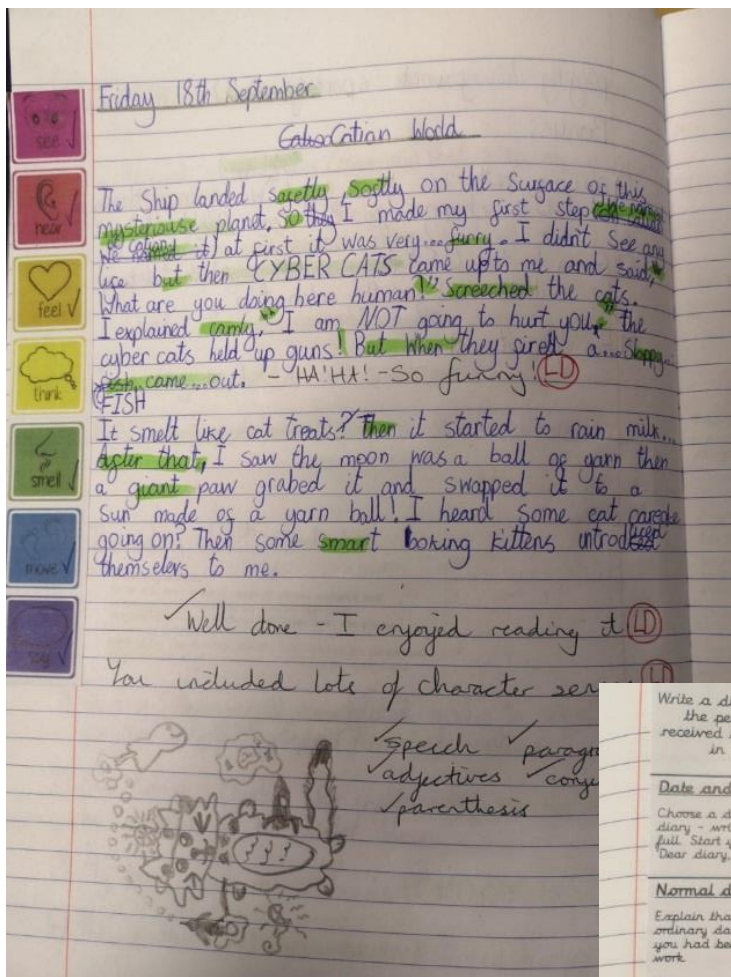 Friday 18th September
Catian World
see
hear
feel
think
smell
move
say
The Ship landed softly on the Surface of this
mysteriouse planet, So I made my first step
at first it was very...furry. I didn't See any
life but then CYBER CATS came up to me and said,
"What are you doing here human!" Screeched the cats.
I explained camly, "I am NOT going to hurt you," the
cyber cats held up guns! But When they fired a...Sloppy...
came...out. - HA'HA! - So funny! LD
FISH
It smelt like cat treats? Then it started to rain milk...
After that, I saw the moon was a ball of yarn then
a giant paw grabed it and swapped it to a
Sun made of a yarn ball! I heard some cat
going on? Then some smart looking kittens
themselvers to me.
Well done - I enjoyed reading it LD
You included lots of character LD
speech
adjectives
parenthesis
Write a
the
received
in
Date and
Choose a
diary -
full. Start
'Dear diary,
Normal
Explain
ordinary
you had
work